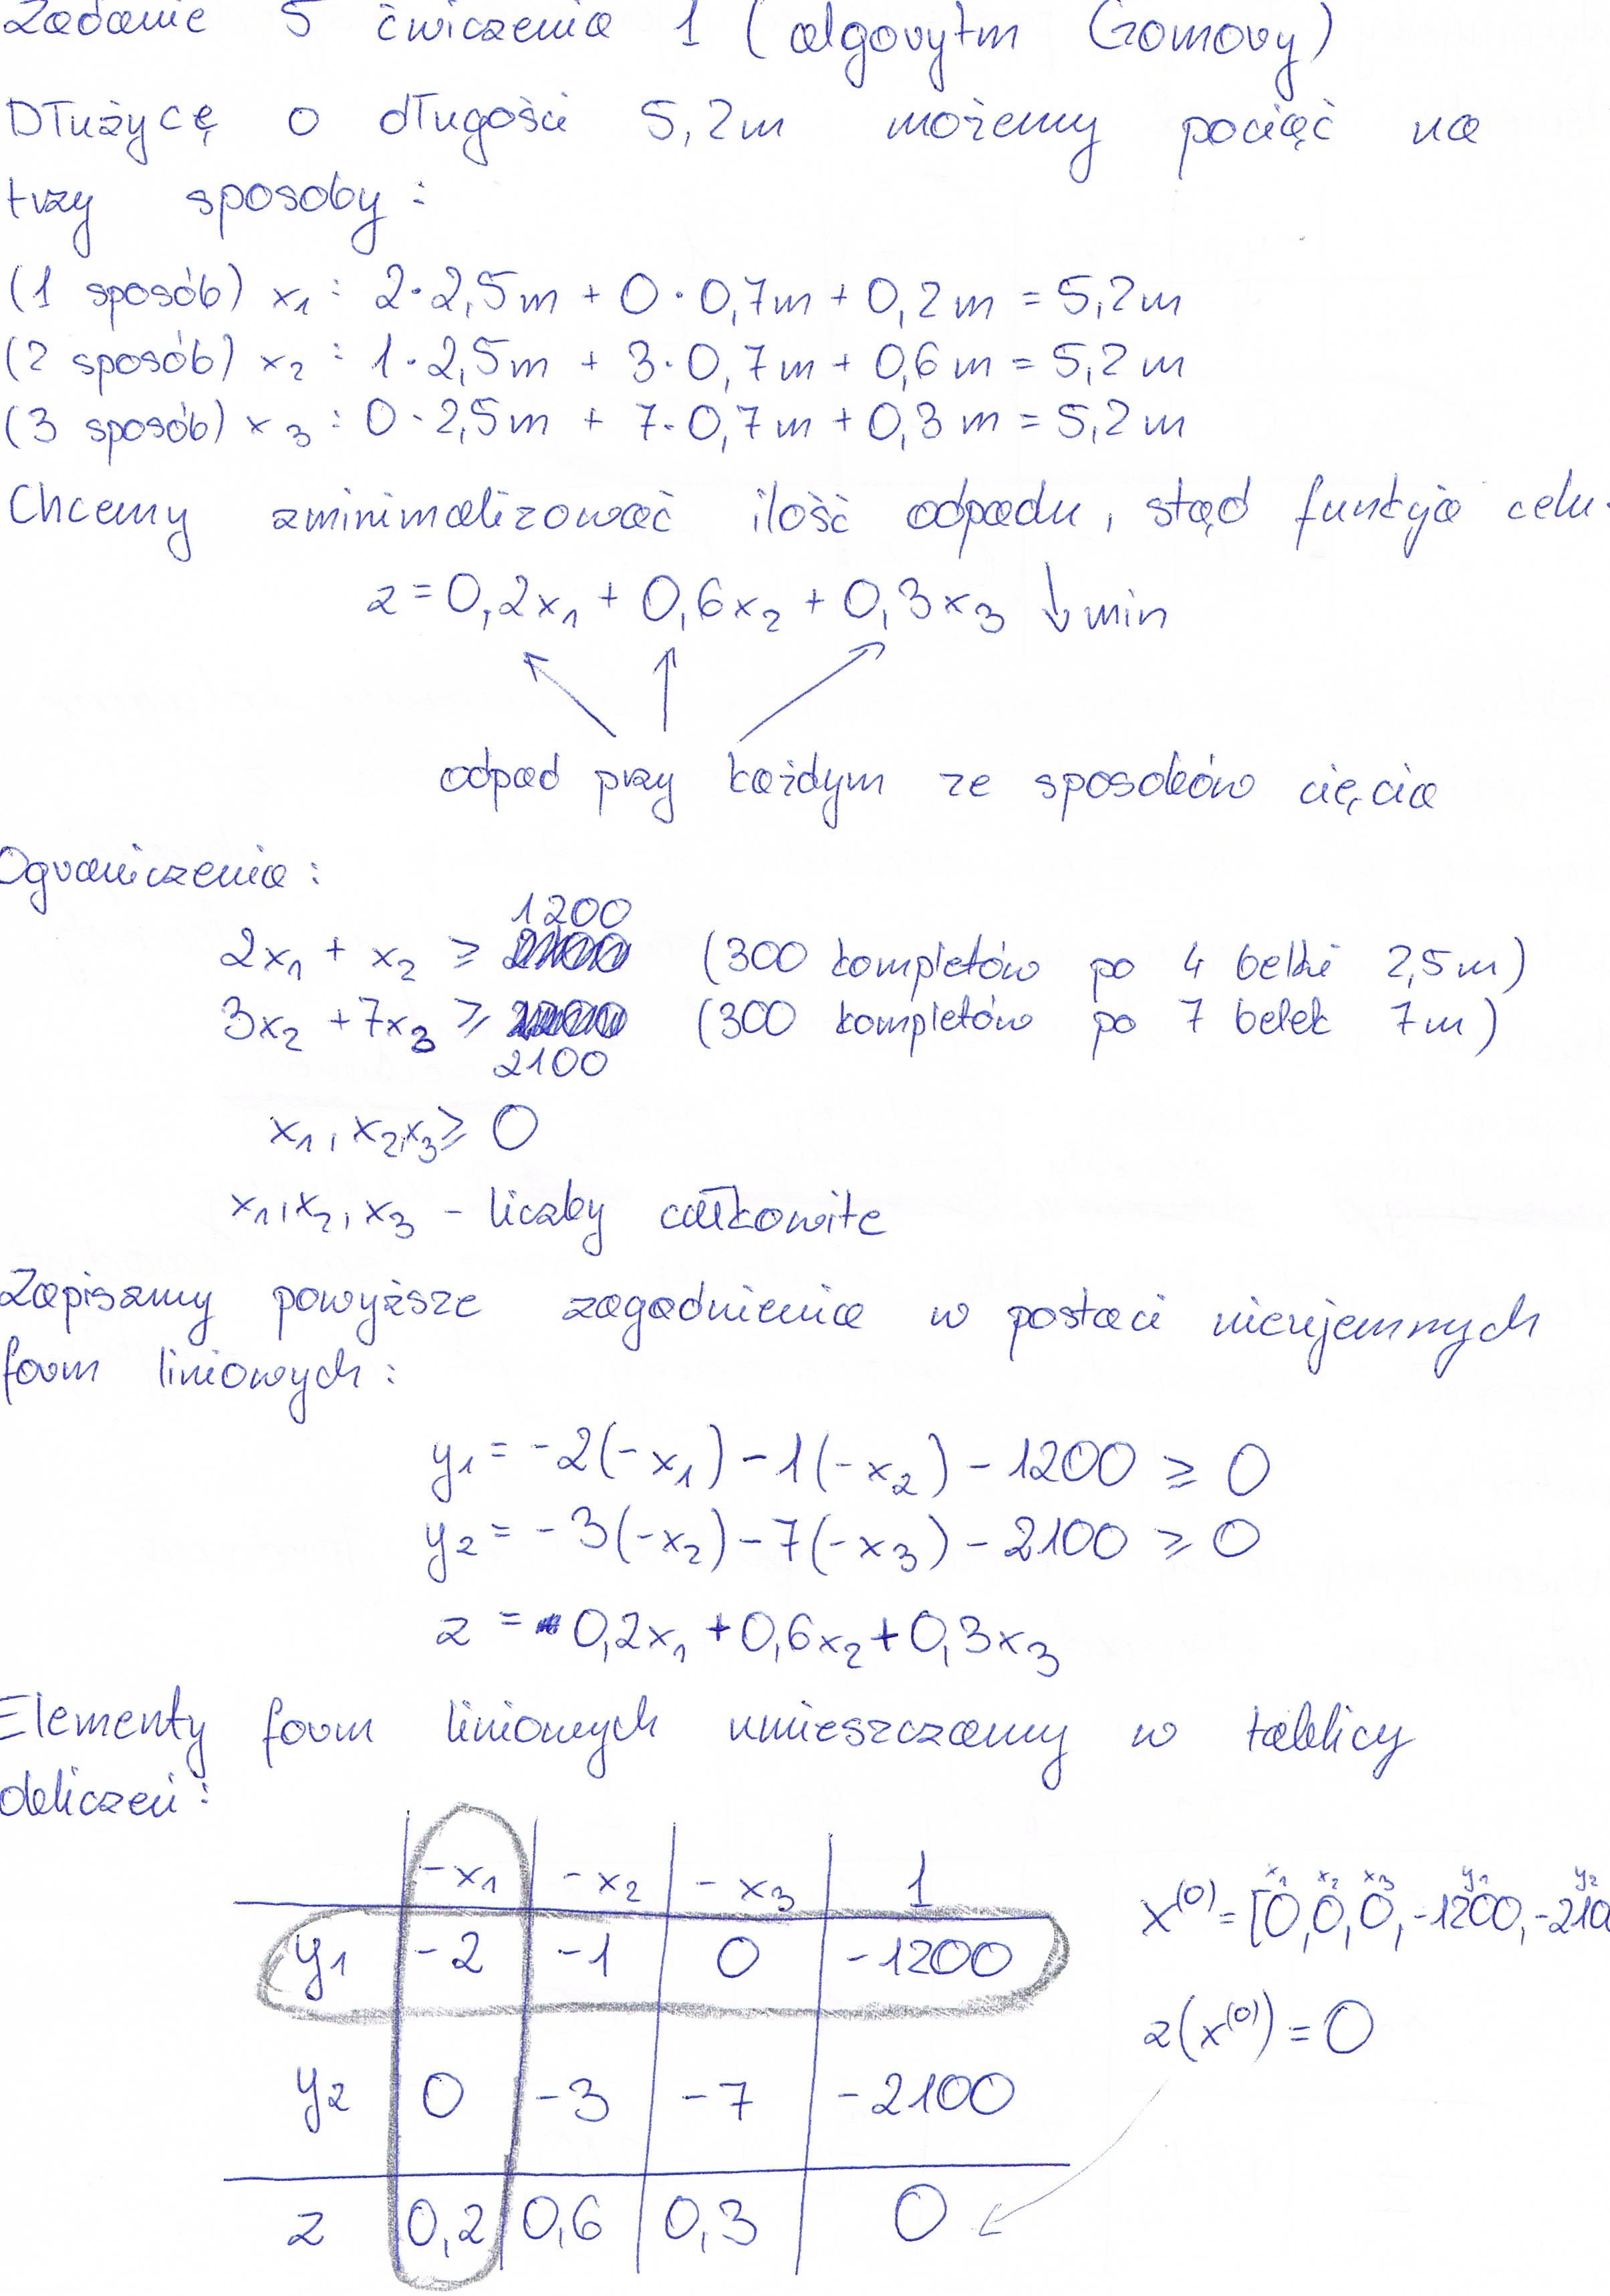 Zadanie 5 ćwiczenia 1 (algorytm Gomory)
Dłużycę o długości 5,2m możemy pociąć na
trzy sposoby:
(1 sposób) x₁: 2·2,5m + 0·0,7m + 0,2m = 5,2m
(2 sposób) x₂: 1·2,5m + 3·0,7m + 0,6m = 5,2m
(3 sposób) x₃: 0·2,5m + 7·0,7m + 0,3m = 5,2m
Chcemy zminimalizować ilość odpadu, stąd funkcja celu:
z = 0,2x₁ + 0,6x₂ + 0,3x₃ ↓ min
odpad przy każdym ze sposobów cięcia
Ograniczenia:
2x₁ + x₂ ≥ 1200 (300 kompletów po 4 belki 2,5m)
3x₂ + 7x₃ ≥ 2100 (300 kompletów po 7 belek 7m)
x₁, x₂, x₃ ≥ 0
x₁, x₂, x₃ - liczby całkowite
Zapiszmy powyższe zagadnienie w postaci nieujemnych
form liniowych:
y₁ = -2(-x₁) - 1(-x₂) - 1200 ≥ 0
y₂ = -3(-x₂) - 7(-x₃) - 2100 ≥ 0
z = 0,2x₁ + 0,6x₂ + 0,3x₃
Elementy form liniowych umieszczamy w tablicy
obliczeń:
-x₁ -x₂ -x₃ 1
y₁ -2 -1 0 -1200
y₂ 0 -3 -7 -2100
z 0,2 0,6 0,3 0
x₁ x₂ x₃ y₁ y₂
x⁽⁰⁾ = [0, 0, 0, -1200, -210
z(x⁽⁰⁾) = 0